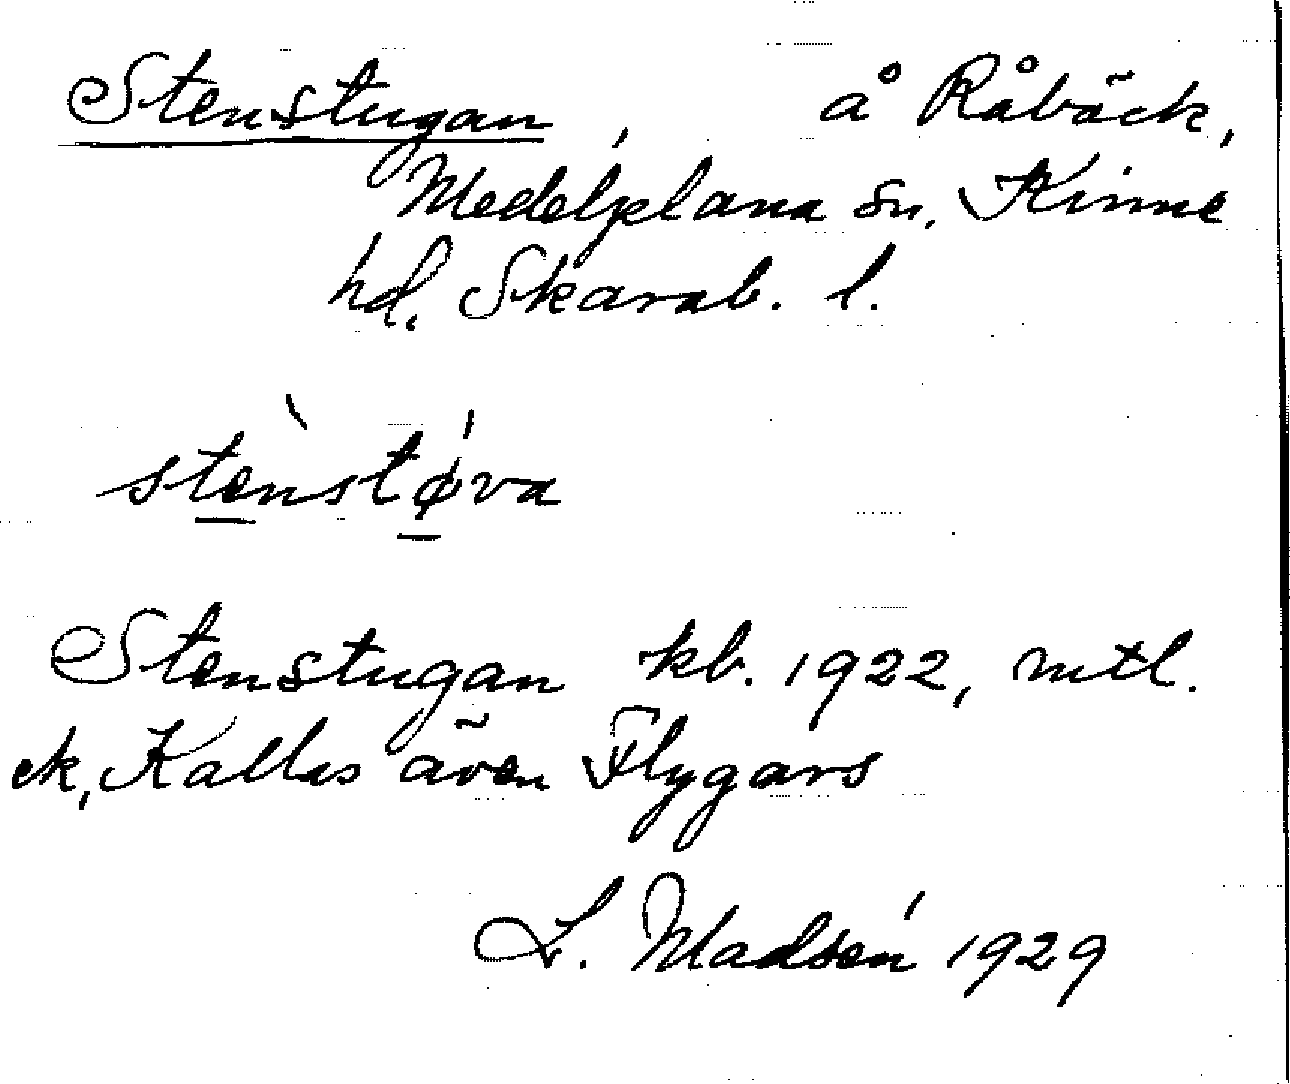 Stenstugan, å Råbäck,
Medelplana sn, Kinne
hd. Skarab. l.
stènstǿva
Stenstugan kb. 1922, mtl.
ek, Kallas även Flygars
L. Madsén 1929